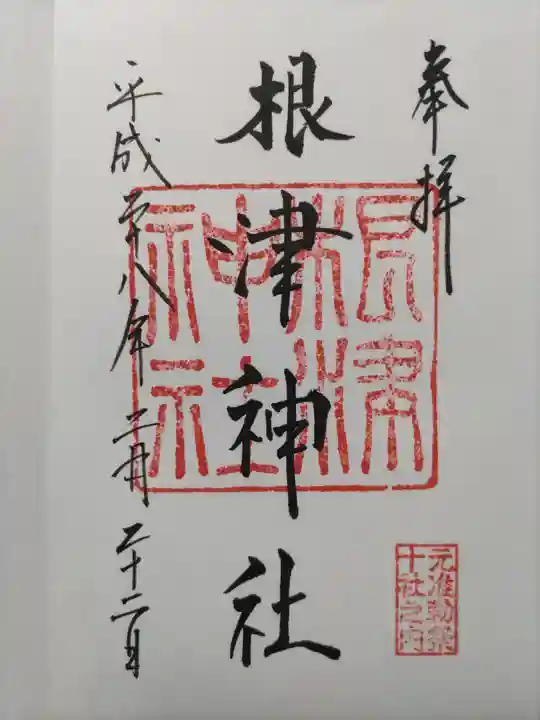 奉拝
根津神社
根津神社
平成二十八年二月二十二日
元准勅祭
十社之内